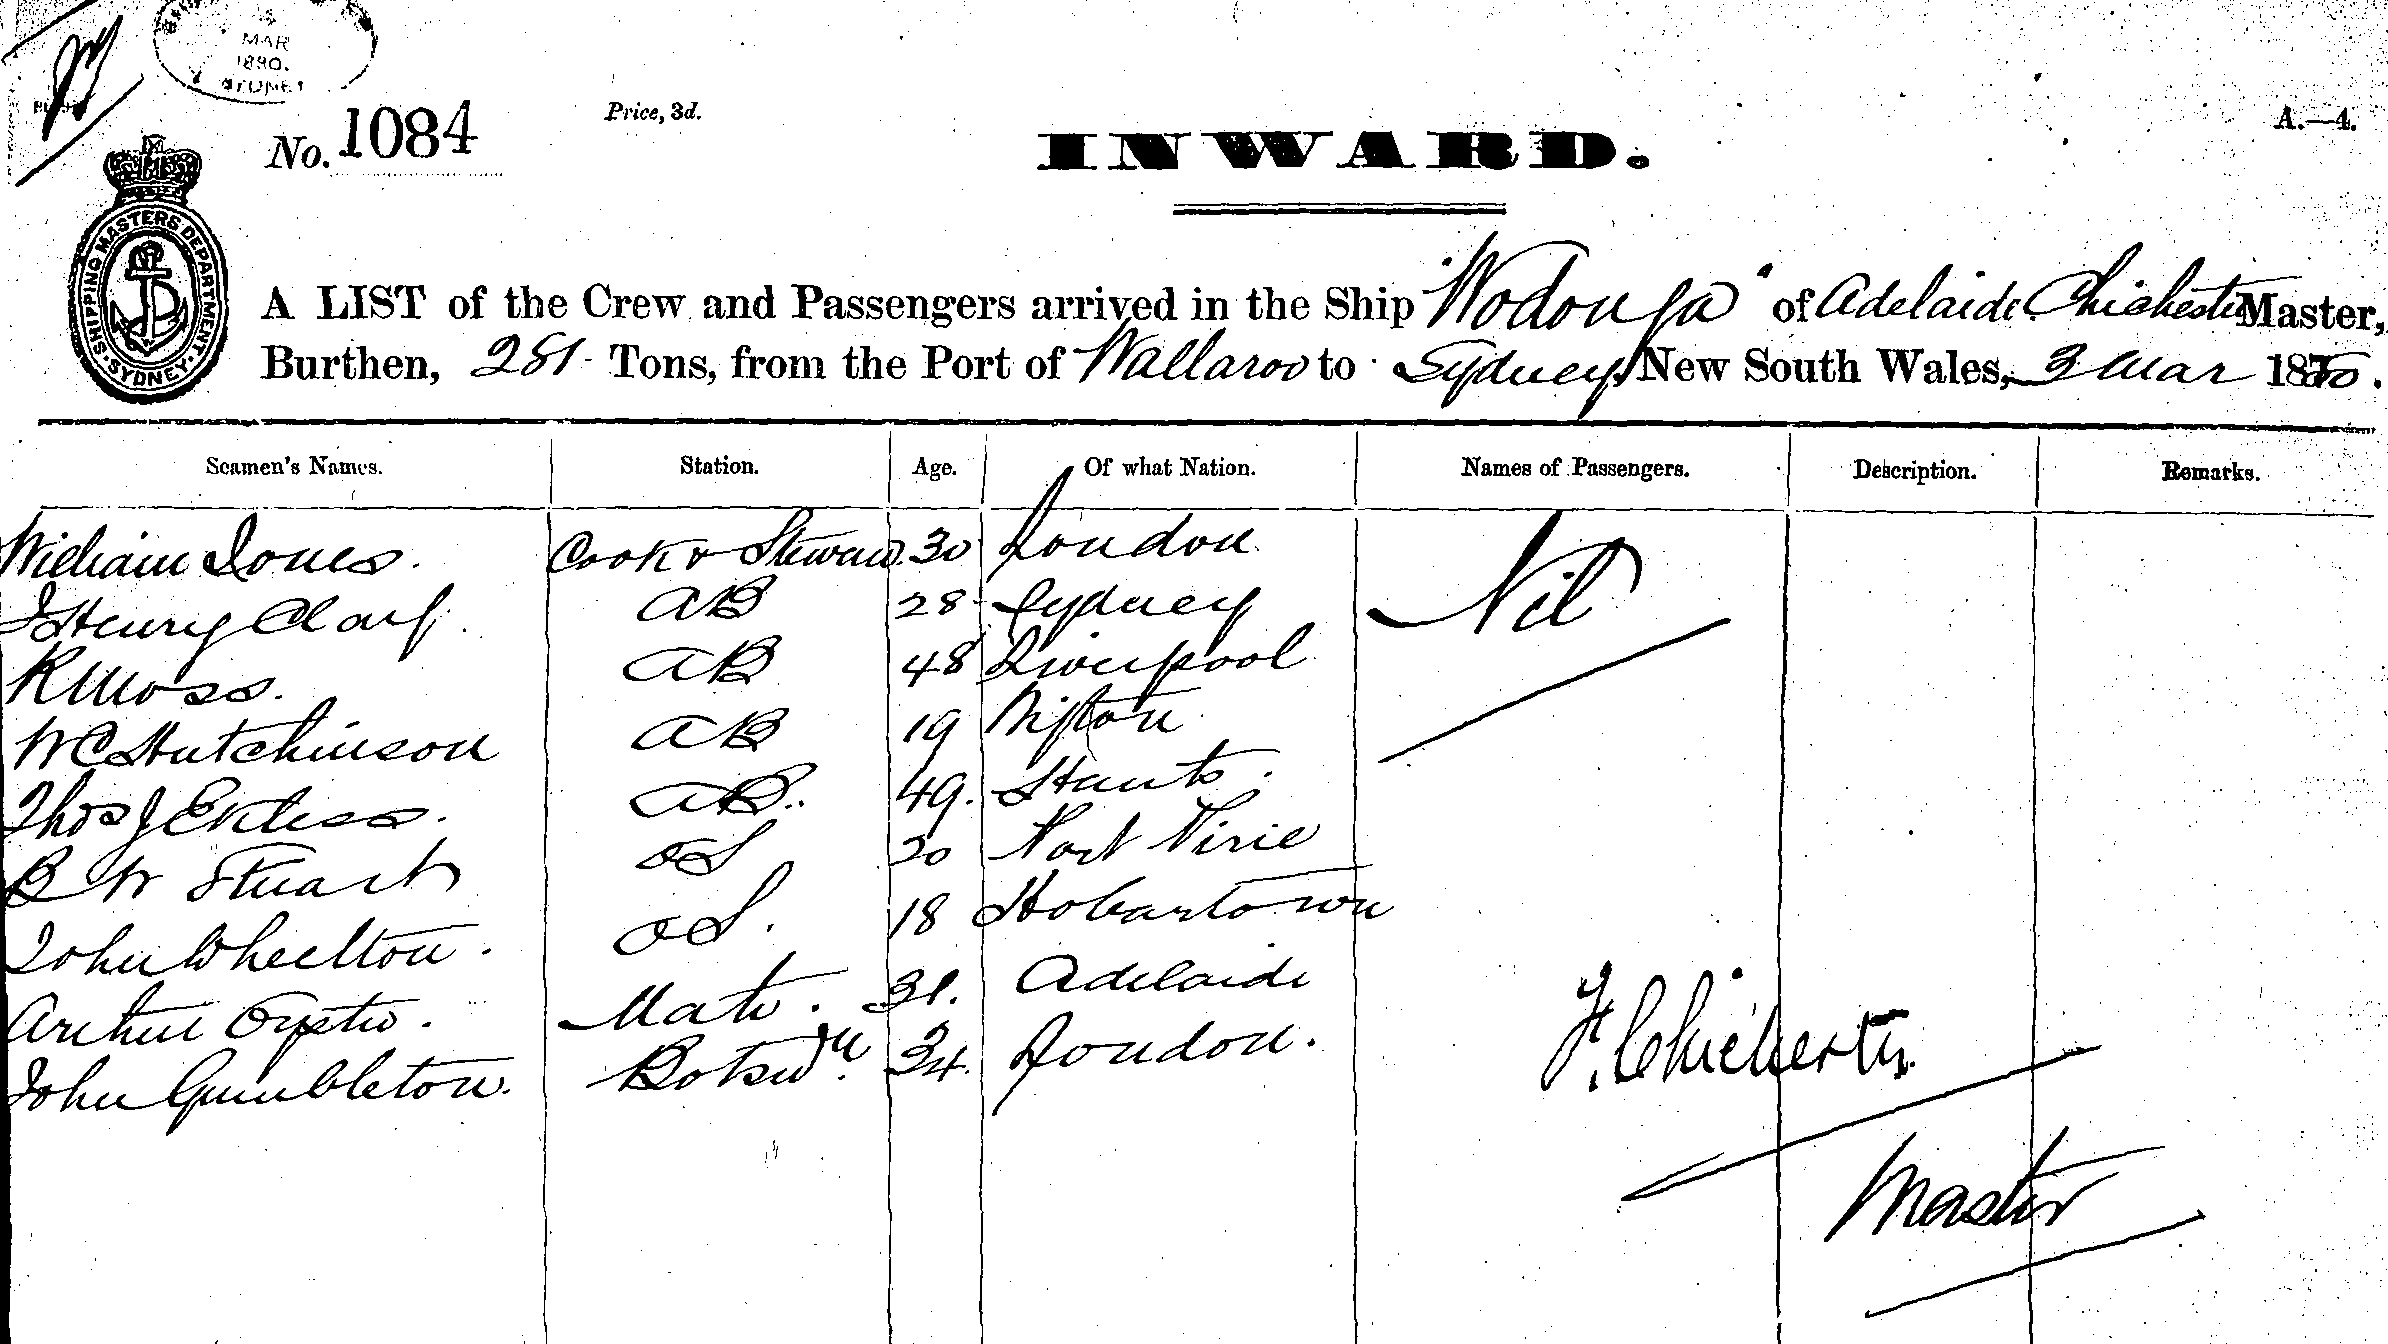 MAR
1880.
SYDNEY
No. 1084
Price, 3d.
INWARD.
A.—4.
SHIPPING MASTERS DEPARTMENT · SYDNEY ·
A LIST of the Crew and Passengers arrived in the Ship "Wodonga" of Adelaide Chichester Master,
Burthen, 281 Tons, from the Port of Wallaroo to Sydney, New South Wales, 3 Mar 1880.
Seamen's Names. Station. Age. Of what Nation. Names of Passengers. Description. Remarks.
William Jones. Cook & Steward 30 London Nil
J Henry AB 28 Sydney
R Moss. AB 48 Liverpool
W C Hutchinson AB 19
Thos J AB. 49. Hants.
B W Stuart OS 20 Port Pirie
John Wheelton. OS. 18 Hobartown
Arthur Mate. 31. Adelaide
John Gumbleton. Botswn. 34. London.
F. Chichester
Master